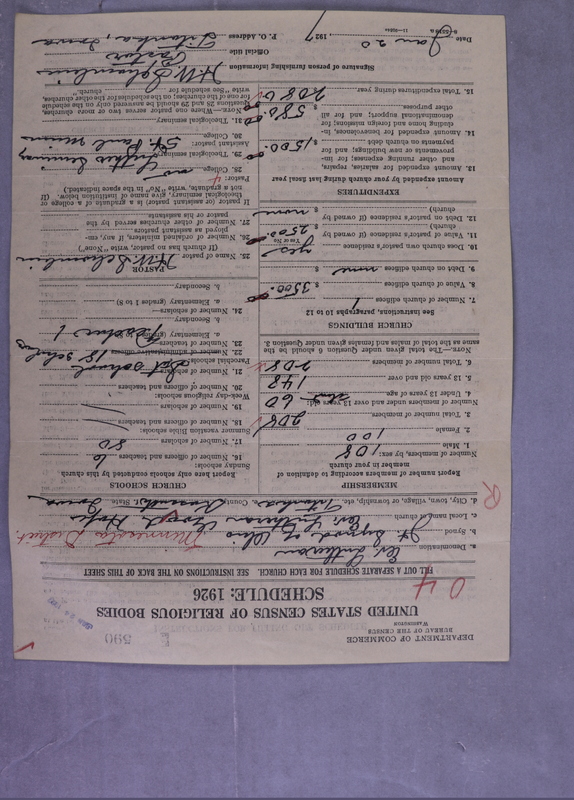 DEPARTMENT OF COMMERCE
BUREAU OF THE CENSUS
WASHINGTON
590
UNITED STATES CENSUS OF RELIGIOUS BODIES
SCHEDULE: 1926
04
FILL OUT A SEPARATE SCHEDULE FOR EACH CHURCH. SEE INSTRUCTIONS ON THE BACK OF THIS SHEET
a. Denomination Ev. Lutheran
b. Synod Jt. Synod of Ohio Minnesota District
c. Local name of church Ev. Lutheran Good Hope
d. City, town, village, or township, etc. Titonka County Kossuth State Iowa
R
MEMBERSHIP
Report number of members according to definition of member in your church
Number of members, by sex:
1. Male 108
2. Female 100
3. Total number of members 208
Number of members under and over 13 years old:
4. Under 13 years of age 60
5. 13 years old and over 148
6. Total number of members 208
NOTE.—The total given under Question 6 should be the same as the total of males and females given under Question 3.
CHURCH BUILDINGS
See instructions, paragraphs 10 to 12
7. Number of church edifices 1
8. Value of church edifices $ 3500.
9. Debt on church edifices $ none
10. Does church own pastor's residence yes
Yes or No
11. Value of pastor's residence (if owned by church) $ 2500.
12. Debt on pastor's residence (if owned by church) $ none
EXPENDITURES
Amount expended by your church during last fiscal year
13. Amount expended for salaries, repairs, and other running expenses; for improvements or new buildings; and for payments on church debt $ 1500.
14. Amount expended for benevolences, including home and foreign missions; for denominational support; and for all other purposes $ 580.
15. Total expenditures during year $ 2080
CHURCH SCHOOLS
Report here only schools conducted by this church
Sunday schools:
16. Number of officers and teachers 6
17. Number of scholars 80
Summer vacation Bible schools:
18. Number of officers and teachers
19. Number of scholars
Week-day religious schools:
20. Number of officers and teachers
21. Number of scholars
Parochial schools:
22. Number of administrative officers
23. Number of teachers—
a. Elementary (grades 1 to 8)
b. Secondary
24. Number of scholars—
a. Elementary (grades 1 to 8)
b. Secondary
PASTOR
25. Name of pastor
(If church has no pastor, write "None")
26. Number of ordained ministers, if any, employed as assistant pastors
27. Number of other churches served by the pastor or his assistants
If pastor (or assistant pastor) is a graduate of a college or theological seminary, give name of institution below. (If not a graduate, write "No" in the space indicated.)
Pastor:
28. College no
29. Theological seminary Luther Seminary St. Paul Minn
Assistant pastor:
30. College
31. Theological seminary
NOTE.—Where one pastor serves two or more churches, Questions 25 and 28 should be answered only on the schedule for one of the churches; on the schedules for the other churches, write "See schedule for church."
Signature of person furnishing information
Official title Pastor
P. O. Address Titonka, Iowa
Date Jan 20, 1927